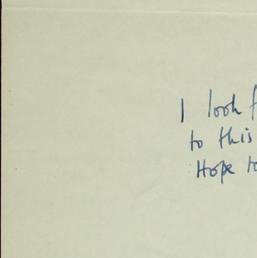 I look
to this
Hope to